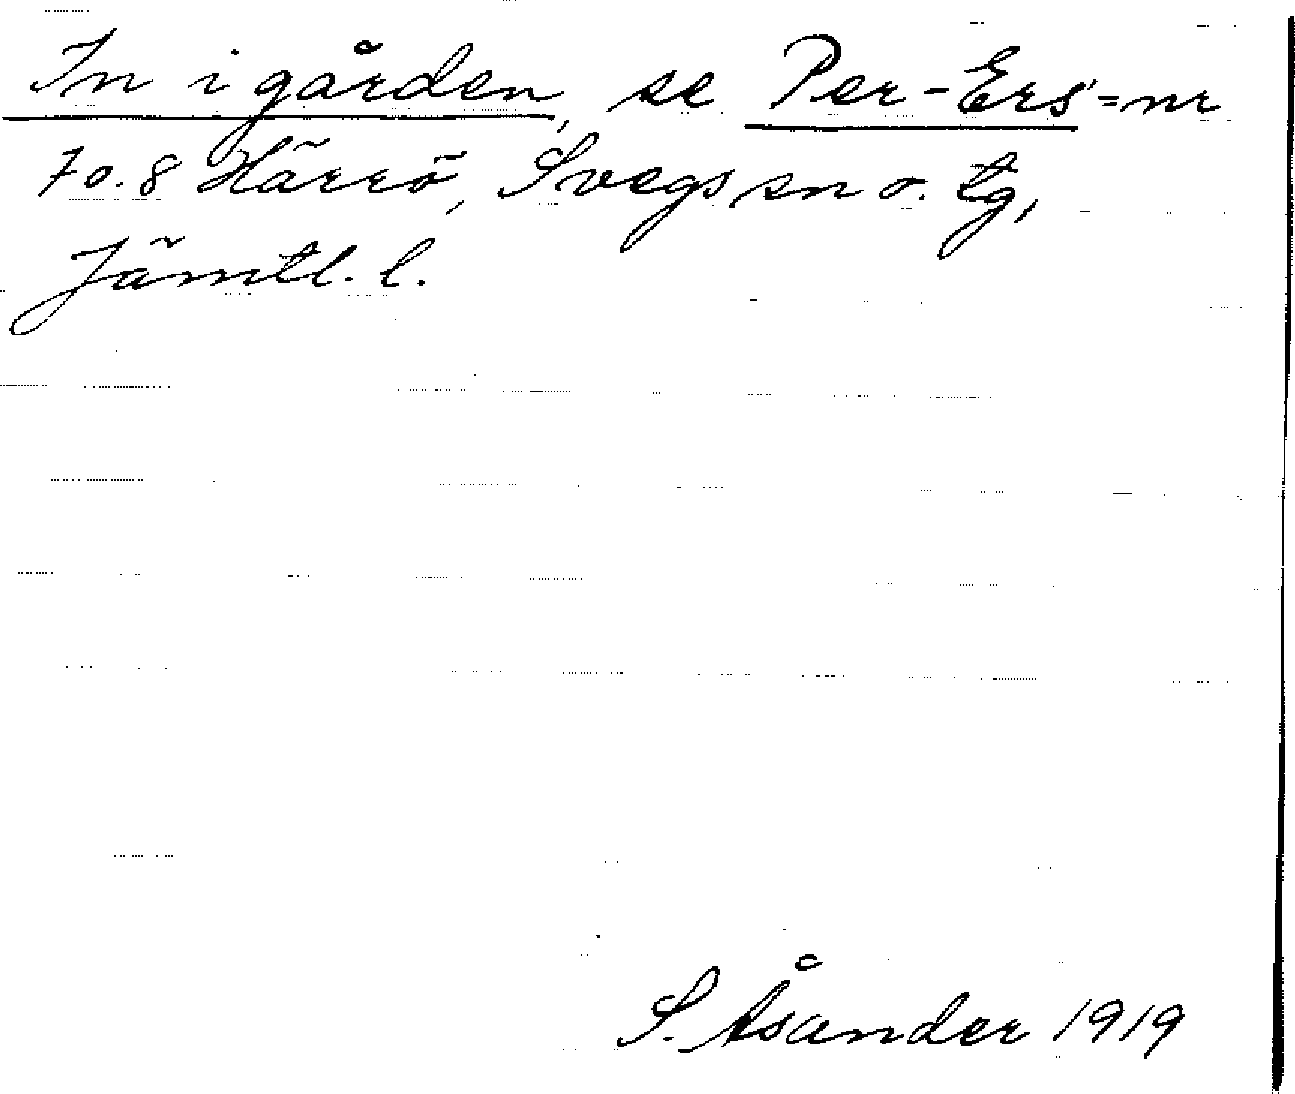 In i gården, se Per-Ers=nr
7 o. 8 Härrö, Svegs sn o. tg,
Jämtl. l.
S. Åsander 1919